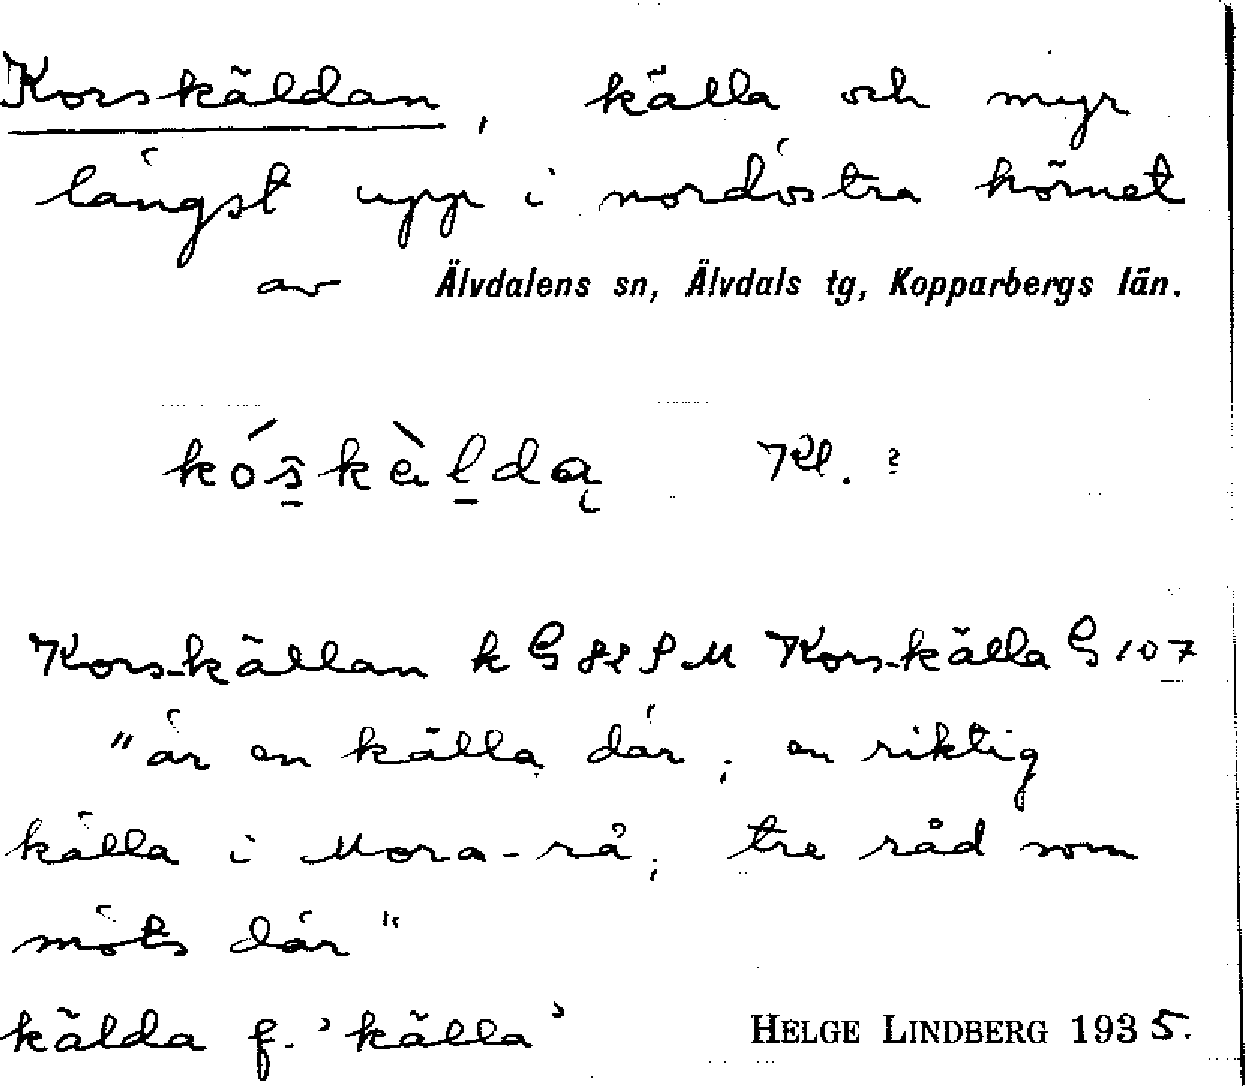 Korskäldan, källa och myr
längst upp i nordöstra hörnet
av Älvdalens sn, Älvdals tg, Kopparbergs län.
kó̱s̱kèḻdą Kl. ?
Kors-källan k G 82 S M Kors-källa G 107
"är en källa där, en riktig
källa i Mora-rå, tre råd som
möts där"
källda f. 'källa' HELGE LINDBERG 1935.